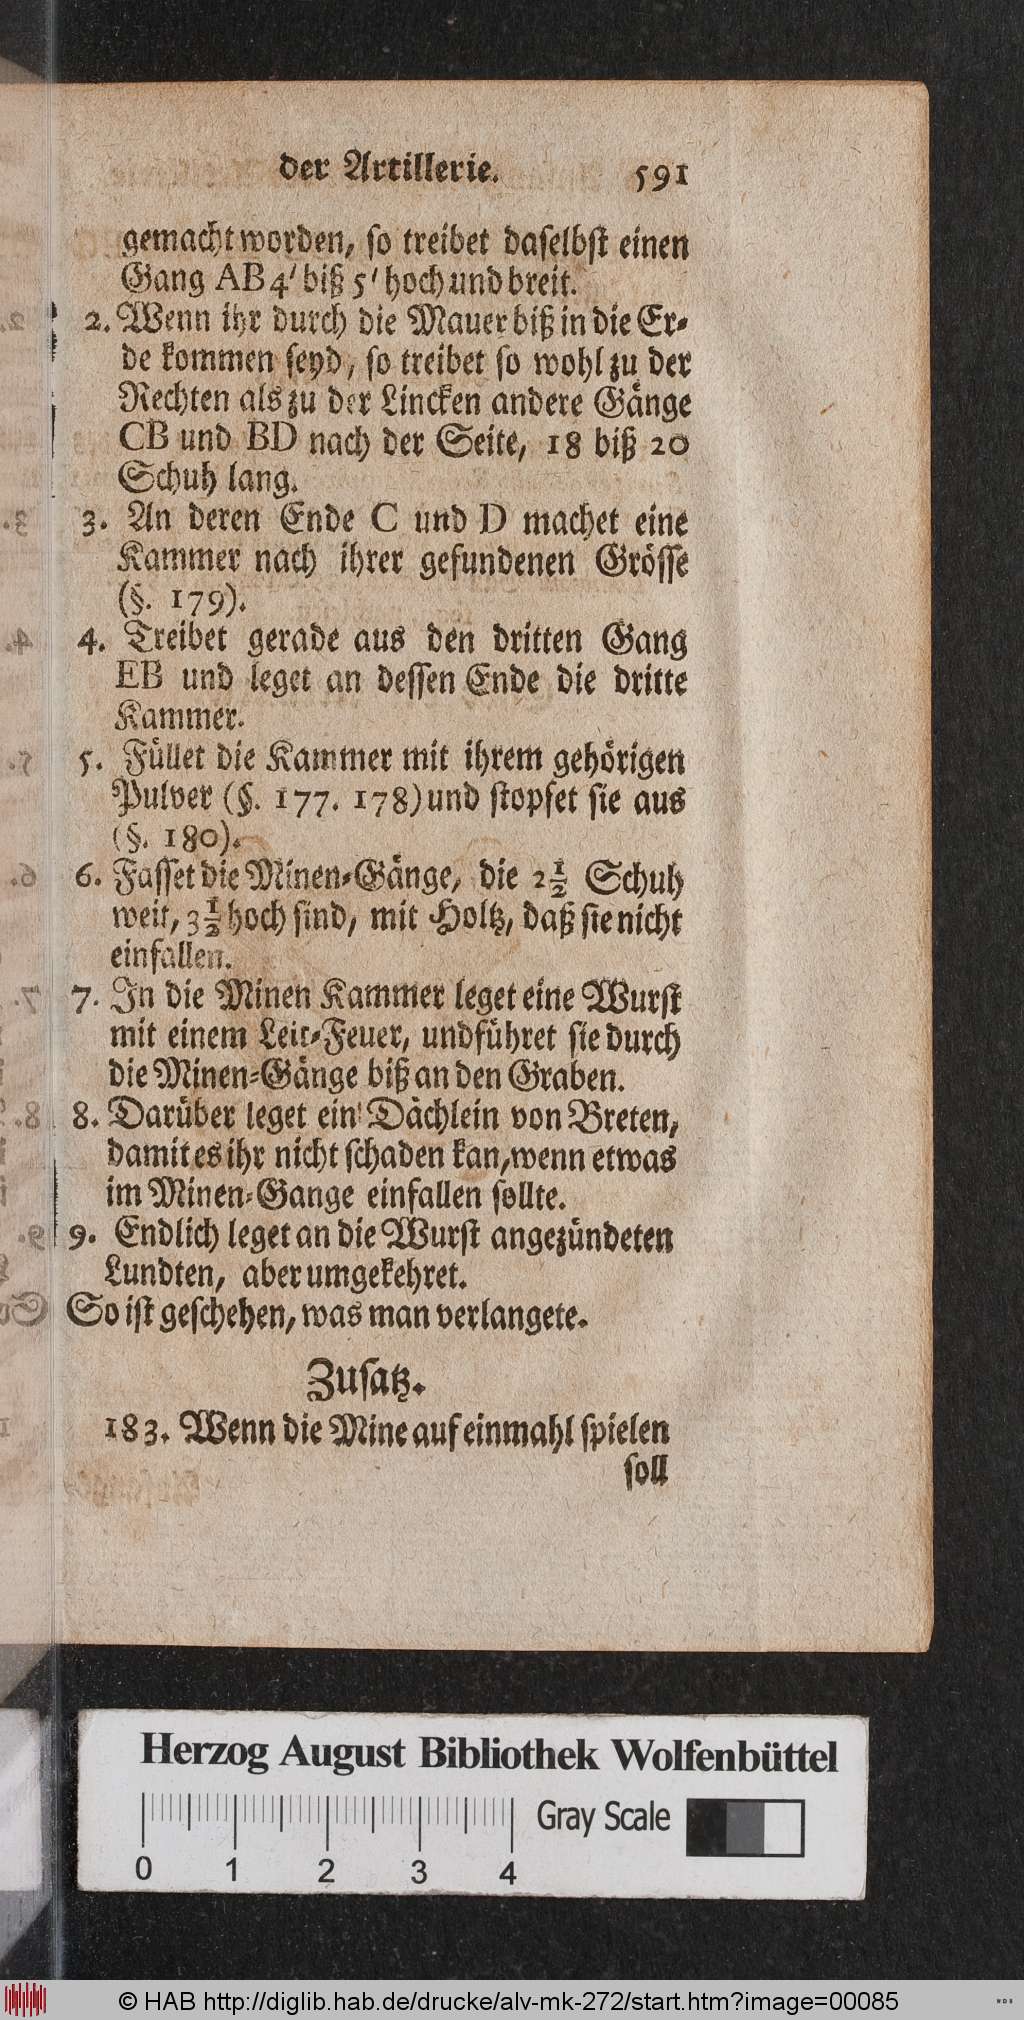 der Artillerie. 591
gemacht worden, so treibet daselbst einen
Gang AB 4' biß 5' hoch und breit.
2. Wenn ihr durch die Mauer biß in die Er-
de kommen seyd, so treibet so wohl zu der
Rechten als zu der Lincken andere Gänge
CB und BD nach der Seite, 18 biß 20
Schuh lang.
3. An deren Ende C und D machet eine
Kammer nach ihrer gefundenen Grösse
(§. 179).
4. Treibet gerade aus den dritten Gang
EB und leget an dessen Ende die dritte
Kammer.
5. Füllet die Kammer mit ihrem gehörigen
Pulver (§. 177. 178) und stopfet sie aus
(§. 180).
6. Fasset die Minen-Gänge, die 2½ Schuh
weit, 3½ hoch sind, mit Holtz, daß sie nicht
einfallen.
7. In die Minen Kammer leget eine Wurst
mit einem Leit-Feuer, und führet sie durch
die Minen-Gänge biß an den Graben.
8. Darüber leget ein Dächlein von Breten,
damit es ihr nicht schaden kan, wenn etwas
im Minen-Gange einfallen sollte.
9. Endlich leget an die Wurst angezündeten
Lundten, aber umgekehret.
So ist geschehen, was man verlangete.
Zusatz.
183. Wenn die Mine auf einmahl spielen
soll
Herzog August Bibliothek Wolfenbüttel
Gray Scale
0 1 2 3 4
© HAB http://diglib.hab.de/drucke/alv-mk-272/start.htm?image=00085